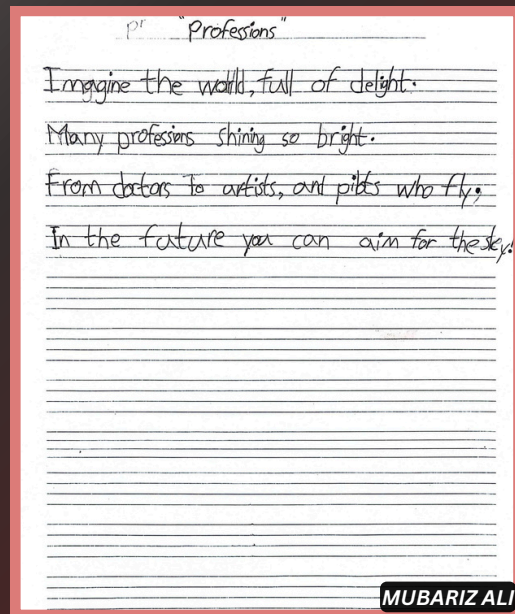 pr "Professions"
Imagine the world, full of delight.
Many professions shining so bright.
From doctors to artists, and pilots who fly,
In the future you can aim for the sky!
MUBARIZ ALI